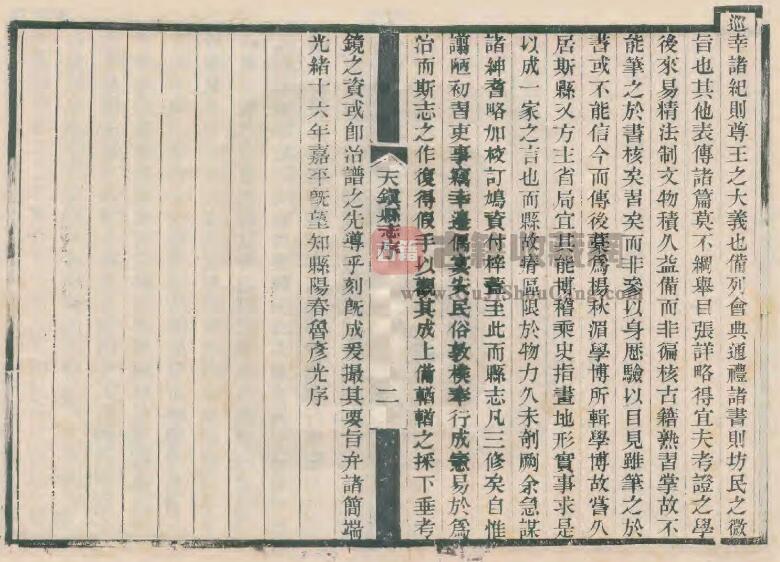 巡幸諸紀則尊王之大義也備列會典通禮諸書則坊民之微
旨也其他表傳諸篇莫不綱舉目張詳略得宜夫考證之學
後來易精法制文物積久益備而非徧核古籍熟習掌故不
能筆之於書核矣習矣而非參以身歷驗以目見雖筆之於
書或不能信今而傳後茲爲楊秋湄學博所輯學博故嘗久
居斯縣又方主省局宜其能博稽乘史指畫地形實事求是
以成一家之言也而縣故瘠區限於物力久未剞劂余急謀
諸紳耆略加校訂鳩資付梓葢至此而縣志凡三修矣自惟
譾陋初習吏事竊幸邊俗民俗敦樸奉行成憲易於爲
治而斯志之作復得假手以觀其成上備輶輶之採下垂考
天鎮縣志序 二
鏡之資或卽治譜之先導乎刻旣成爰撮其要旨弁諸簡端
光緒十六年嘉平旣望知縣陽春魯彥光序
古籍
古籍收藏網
www.GuJiShouCang.com